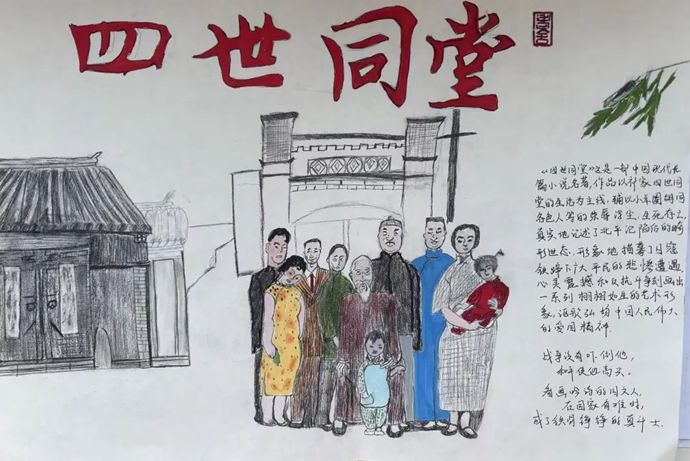 四世同堂
老舍
《四世同堂》这是一部中国现代长
篇小说名著,作品以祁家四世同
堂的生活为主线,辅以小羊圈胡同
各色人等的荣辱浮沉、生死存亡,
真实地记述了北平沦陷后的畸
形世态,形象地描摹了日寇
铁蹄下广大平民的悲惨遭遇,
心灵震撼和反抗斗争刻画出
一系列栩栩如生的艺术形
象,讴歌弘扬中国人民伟大
的爱国精神
战争没有吓倒他,
和平使他高尖。
看画吟诗的旧文人,
在国家有难时,
成了铁骨铮铮的真斗士.